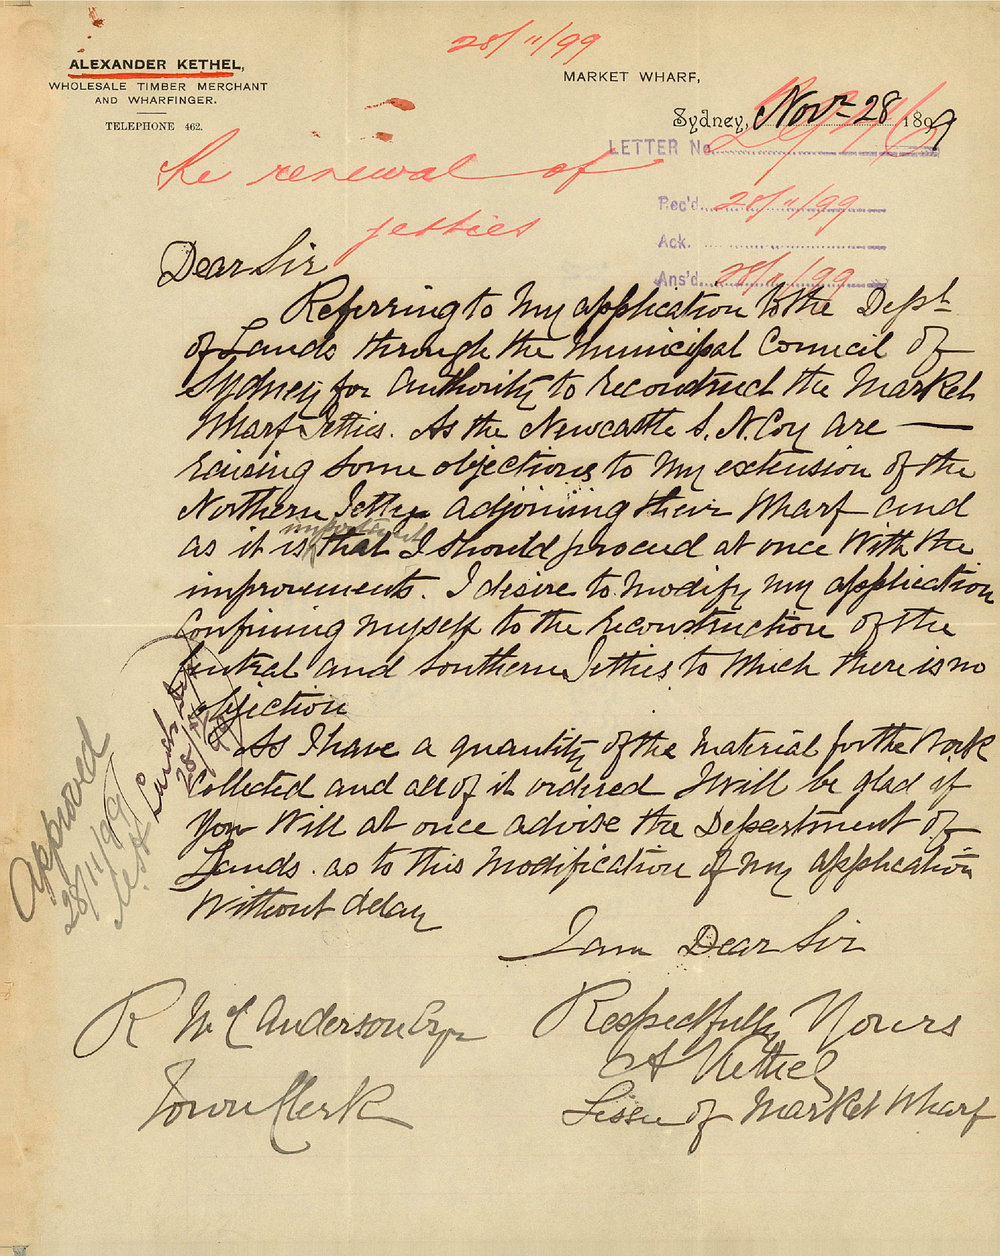 28/11/99
ALEXANDER KETHEL,
WHOLESALE TIMBER MERCHANT
AND WHARFINGER.
TELEPHONE 462.
MARKET WHARF,
Sydney, Novr 28 1899
LETTER No.
Re renewal of
jetties
Rec'd. 28/11/99
Ack.
Ans'd. 28/11/99
Dear Sir
Referring to my application to the Dept
of Lands through the Municipal Council of
Sydney for authority to reconstruct the Market
Wharf Jetties. As the Newcastle S. N. Coy are —
raising some objections to my extension of the
Northern Jetty adjoining their Wharf and
as it is important that I should proceed at once With the
improvements. I desire to modify my application
Confining myself to the reconstruction of the
Central and Southern Jetties to Which there is no
objection
As I have a quantity of the material for the Work
Collected and all of it ordered I will be glad if
you Will at once advise the Department of
Lands. as to this modification of my application
Without delay
I am Dear Sir
Respectfully Yours
A Kethel
Lessee of Market Wharf
R McC Anderson Esqr
Town Clerk
Approved
28/11/99
Lands Dept
28/11/99